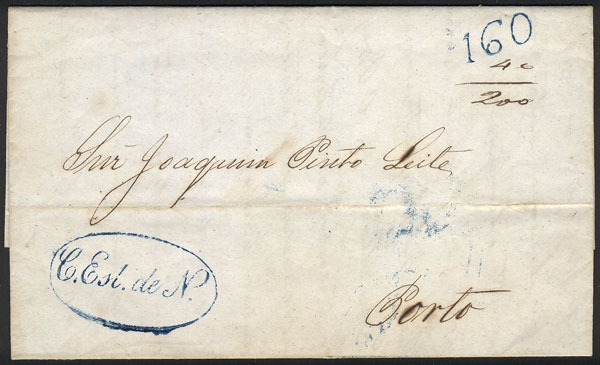 160
40
200
Snr Joaquim Pinto Leite
C. Est. de N.
Porto